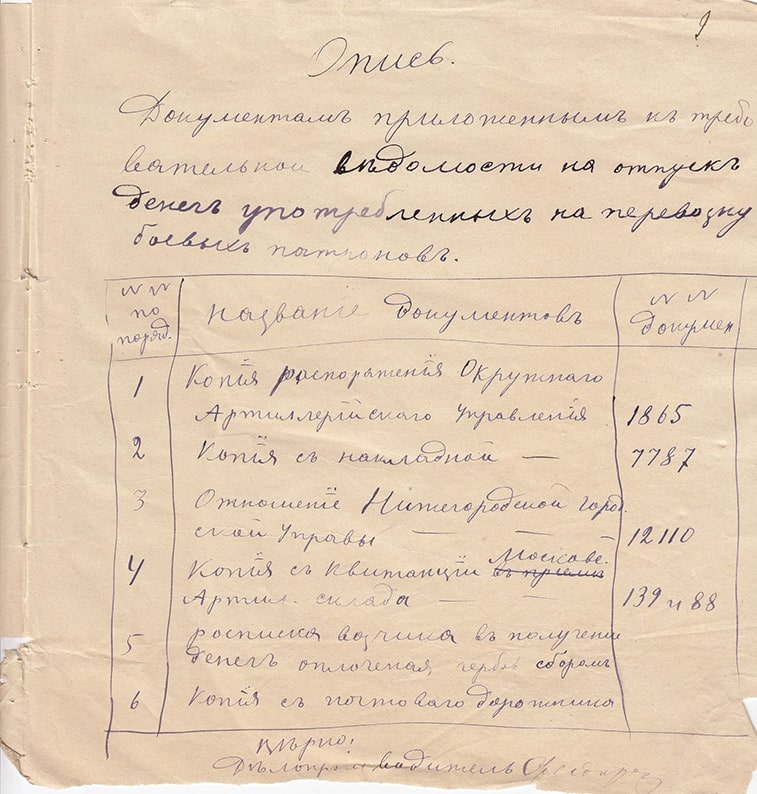 Опись.
Документамъ приложеннымъ къ требо
вательной вѣдомости на отпускъ
денегъ употребленныхъ на перевозку
боевыхъ патроновъ.
№ №
по
поряд.
Названіе документовъ
№ №
Докумен
1 Копія распоряженія Окружнаго
Артиллерійскаго Управленія 1865
2 Копія съ накладной — 7787
3 Отношеніе Нижегородской город
ской Управы — — 12110
Москове.
4 Копія съ квитанціи въ пріемѣ
Артил. склада — — 139 и 88
5 росписка возчика въ полученіи
денегъ оплоченая гербов сборомъ
6 Копія съ почтоваго дорожника
Вѣрно:
Дѣлопроизводитель